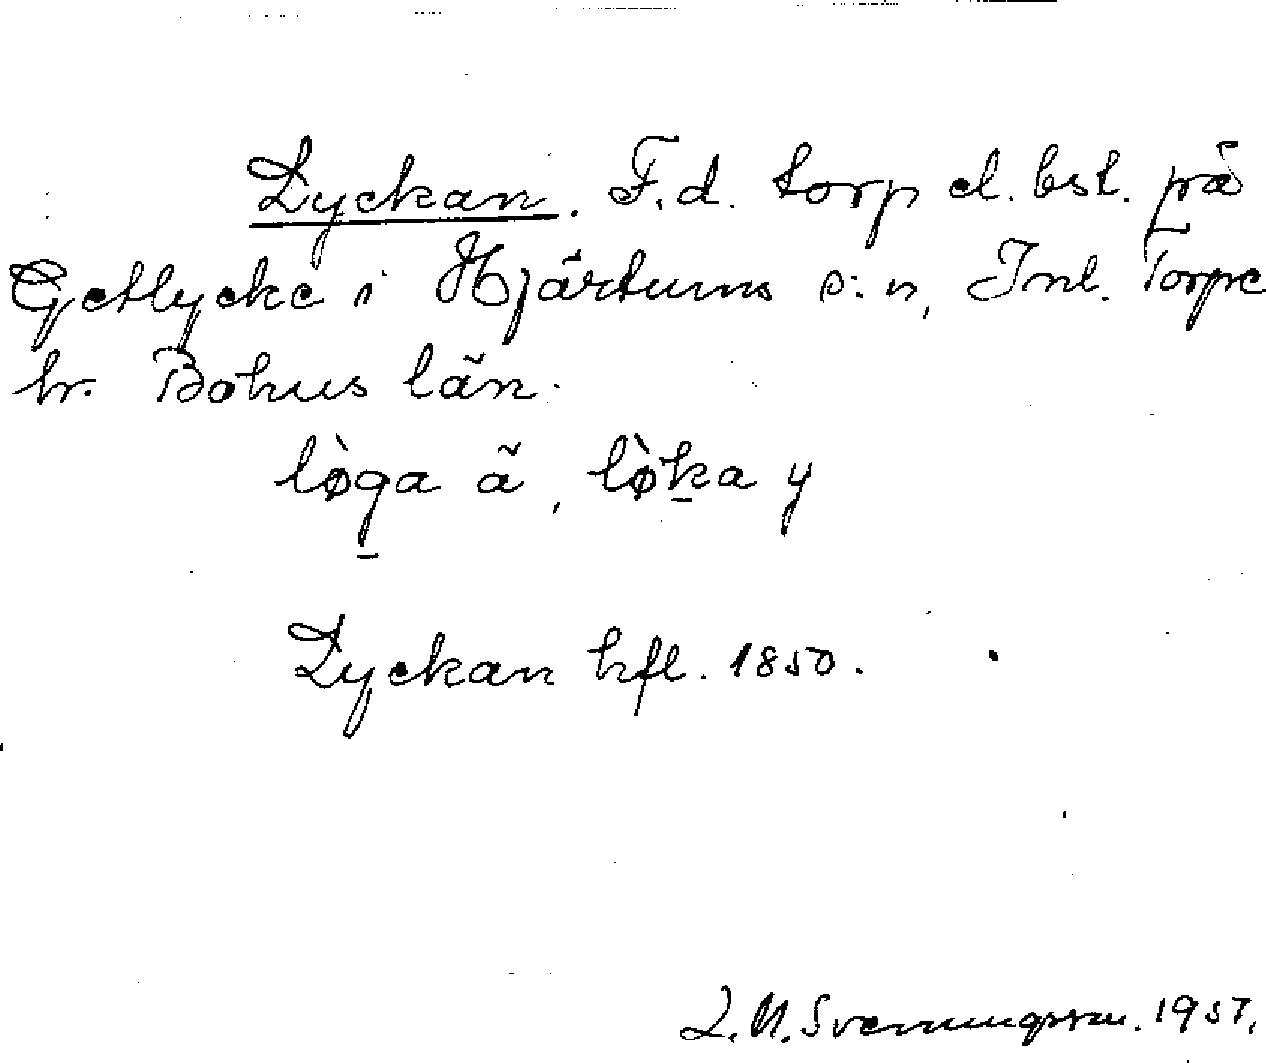 Lyckan. F.d. torp el. bst. på
Getlycke i Hjärtums s:n, Inl. Torpe
hr. Bohus län.
lø̀ga ã, lø̀ka y
Lyckan hfl. 1850.
L.M. Svenningsson. 1957.